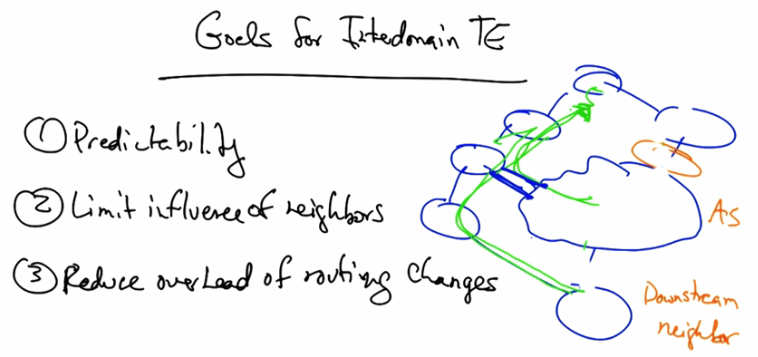 Goals for Interdomain TE
① Predictability
② Limit influence of neighbors
③ Reduce overhead of routing changes
AS
Downstream
neighbor